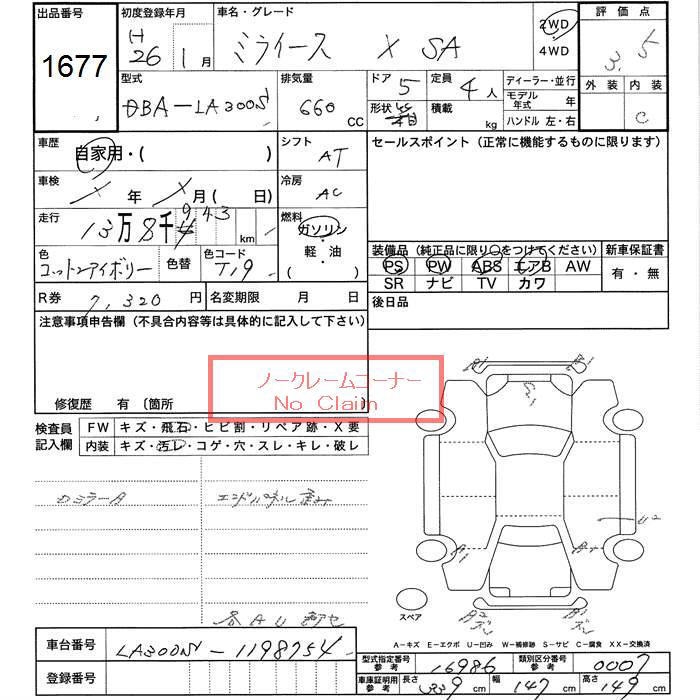 出品番号 初度登録年月 車名・グレード 評価点
1677
(H) 26 1月 ミライース X SA 2WD 4WD 3.5
外装 内装
C
型式 排気量 ドア 定員 ディーラー・並行
DBA-LA300S 660 cc 5 4人 モデル年式 年
形状 積載 kg ハンドル 左・右
車歴 自家用・( ) シフト AT セールスポイント (正常に機能するものに限ります)
車検 X年 X月( 日) 冷房 AC
走行 13万8千9 43 km 燃料 ガソリン・軽・油 ( )
装備品 (純正品に限り○をつけてください) 新車保証書
色 コットンアイボリー 色替 色コード T19
PS PW ABS エアB AW 有・無
SR ナビ TV カワ
R券 7,320円 名変期限 月 日 後日品
注意事項申告欄 (不具合内容等は具体的に記入して下さい)
ノークレームコーナー
No Claim
修復歴 有 〔箇所 〕
検査員記入欄 FW キズ・飛石・ヒビ割・リペア跡・X要
内装 キズ・汚レ・コゲ・穴・スレ・キレ・破レ
ロミラーA
各AU
U2
A1
スペア
A-キズ E-エクボ U-凹み W-補修跡 S-サビ C-腐食 XX-交換済
車台番号 LA300S-1198754
登録番号
型式指定番号 参考 16986 類別区分番号 参考 0007
車庫証明用 参考 長さ 339cm 幅 147cm 高さ 149cm